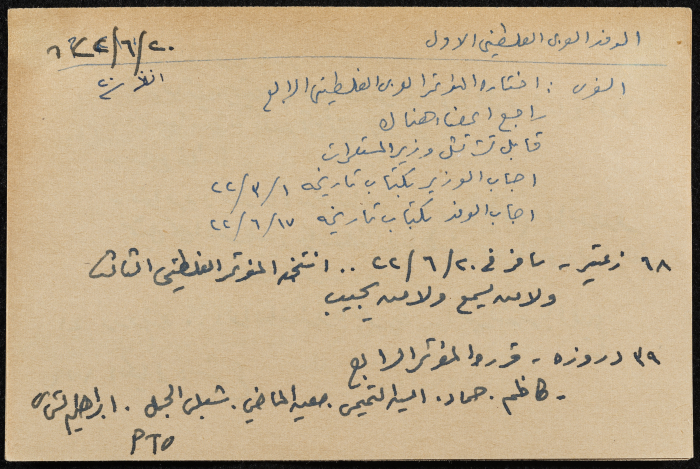 الوفد العربي الفلسطيني الاول
٢٠/٦/
انظر
: اختاره المؤتمر العربي الفلسطيني الرابع
راجع اعضاء هناك
قابل تشرتشل وزير المستعمرات
اجاب الوزير بكتاب تاريخه ٢٢/٣/١
اجاب الوفد بكتاب تاريخه ٢٢/٦/١٧
٦٨ زعيتر - سافر في ٢٢/٦/٢٠ .. انتخبه المؤتمر الفلسطيني الثالث
ولا من يسمع ولا من يجيب
٣٩ دروزه - قرره المؤتمر الرابع
- كاظم . حماد . امين التميمي . معين الماضي . شبلي الجمل . ابراهيم شماس
PTO